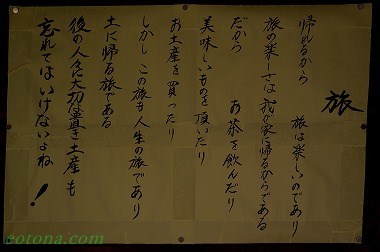 旅
帰れるから　旅は楽しいのであり
旅の楽しさは我が家に帰るからである
だから　お茶を飲んだり
美味しいものを頂いたり
お土産を買ったり
しかし この旅も人生の旅であり
土に帰る旅である
後の人々に大切な置き土産も
忘れてはいけないよね！
eotona.com